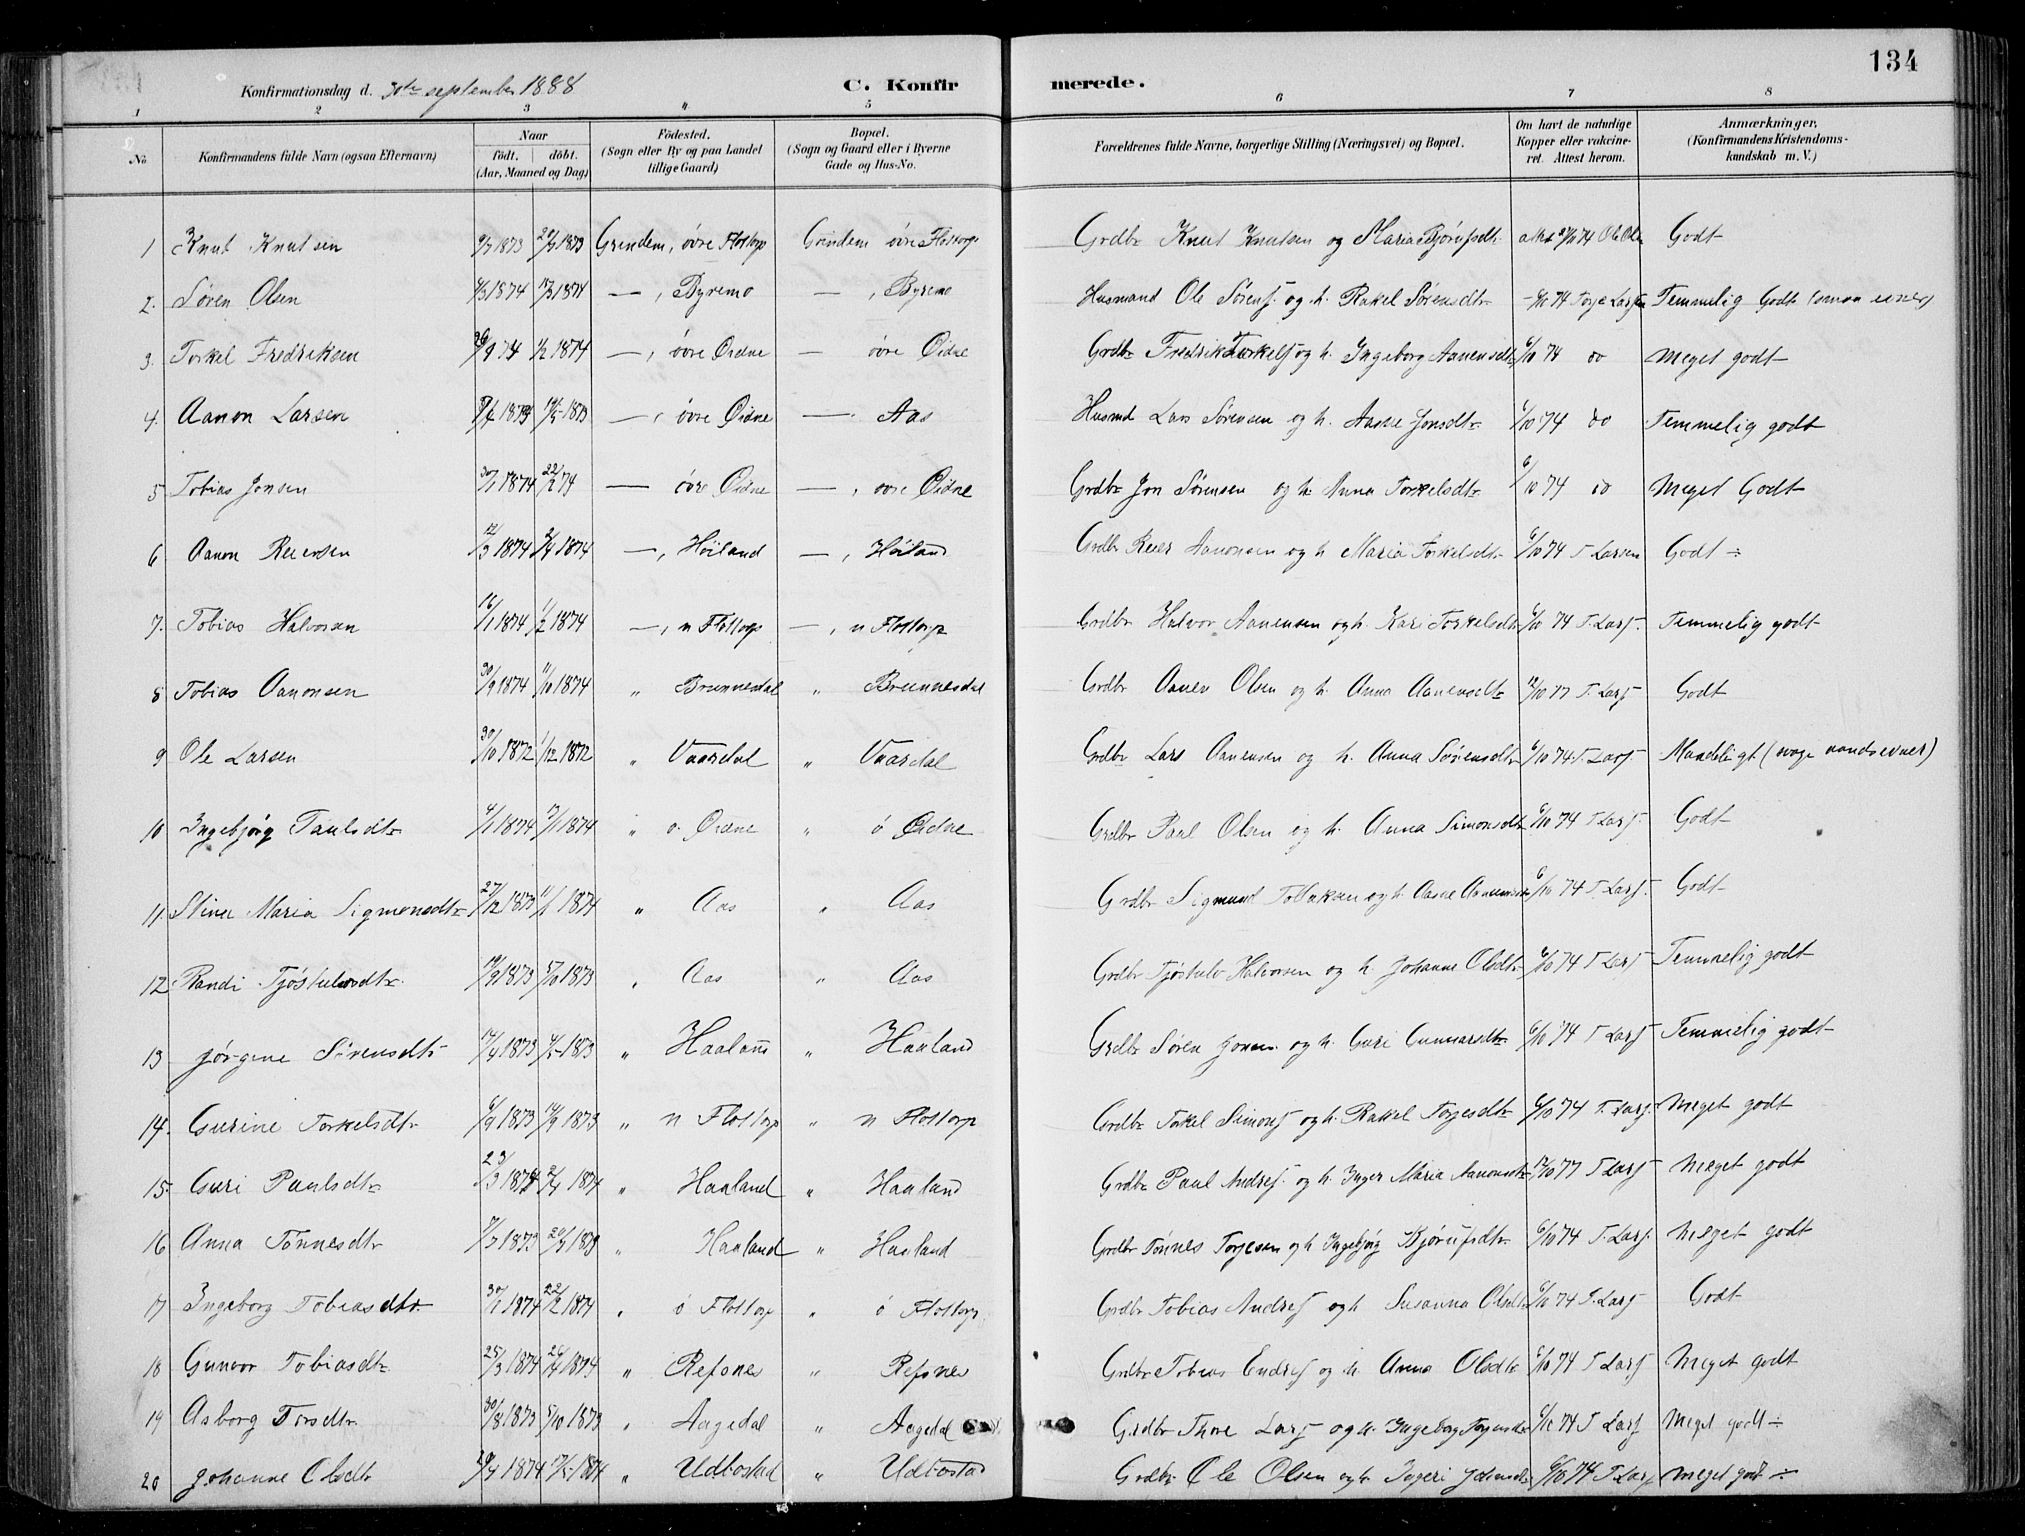 134
Konfirmationsdag d. 30te september 1888 C. Konfirmerede.
1 2 3 " 5 6 7 8
No
Konfirmandens fulde Navn (ogsaa Efternavn)
Naar
födt. döbt.
(Aar, Maaned og Dag)
Födested.
(Sogn eller By og paa Landet
tillige Gaard)
Bopæl.
(Sogn og Gaard eller i Byerne
Gade og Hus-No.
Forældrenes fulde Navne, borgerlige Stilling (Næringsvei) og Bopæl.
Om havt de naturlige
Kopper eller vakcine-
ret. Attest herom.
Anmærkninger,
(Konfirmandens Kristendoms-
kundskab m. V.)
1 Knut Knutsen 1873 1873 Grindem, övre Flottorp Grindem övre Flottorp Grdbr Knut Knutsen og Maria 74 Godt
2. Søren Olsen 1874 1874 —, Byremo —, Byremo Husmand Ole Sørens. og h. Rakel Sørensdtr 6/10 74 Torje Larsen Temmelig Godt
3. Torkel Fredriksen 74 1/2 1874 —, övre Öidne — övre Öidne Grdbr Fredrik Torkels og h. Ingeborg Aanensdtr 6/10 74 do Meget godt
4. Aanon Larsen 1873 —, övre Öidne — Aas Husmd Lars Sørensen og h. Aasne Jonsdtr 6/10 74 do Temmelig godt
5 Tobias Jonsen 30/1 1874 22/2 74 — övre Öidne —, övre Öidne Grdbr Jon Sørensen og h. Anna Torkelsdtr 6/10 74 do Meget Godt
6 Aanon Reiersen 12/3 1874 1874 —, Höiland —, Höiland Grdbr Reier Aanonsen og h Maria Torkelsdtr 6/10 74 T Larsen Godt
7. Tobias Halvorsen 16/1 1874 1/2 1874 —, n Flottorp —, n Flottorp Grdbr Halvor Aanensen og h. Kari Torkelsdtr 6/10 74 T. Lars. Temmelig godt
8 Tobias Aanonsen 30/9 1874 11/10 1874 " Brunnesdal " Brunnesdal Grdbr Aanen Olsen og h. Anna Aanensdtr 12/10 77 T. Lars Godt
9 Ole Larsen 30/10 1872 1/12 1872 " Vaardal " Vaardal Grdbr Lars Aanensen og h. Anna Sørensdtr 6/10 74 T. Lars. Maadeligt (svage aandsevner)
10 Ingebjörg Paulsdtr 4/1 1874 1874 " ö. Öidne " ö Öidne Grdbr Paul Olsen og h. Anna Simonsdtr 6/10 74 T Lars. Godt
11 Stina Maria Sigmonsdtr 27/12 1873 11/1 1874 " Aas " Aas Grdbr Sigmund og h. Aasne 6/10 74 T Lars. Godt
12 Randi Tjöstulvsdtr 1873 5/10 1873 " Aas " Aas Grdbr Tjöstulv Halvorsen og h. Johanne Olsdtr 6/10 74 T Lars Temmelig godt
13 Jørgine Sörensdtr 17/4 1873 1873 " Haaland " Haaland Grdbr Søren Jonsen og h. Guri Gunnarsdtr 6/10 74 T Lars Temmelig godt
14. Gurine Torkelsdtr 6/9 1873 14/9 1873 " n Flottorp " n Flottorp Grdbr Torkel Simons og h. Rakel Torjesdtr 6/10 74 T. Lars. Meget godt
15. Guri Paulsdtr 23/3 1874 1874 " Haaland " Haaland Grdbr Paul Andres. og h. Inger Maria Aanonsdtr 12/10 77 T Lars Meget godt
16 Anna Tønnesdtr 1873 20/7 1873 " Haaland " Haaland Grdbr Tønnes Torjesen og h Ingebjørg Bjørufsdtr 6/10 74 T. Lars. Meget godt
17 Ingeborg Tobiasdtr 30/1 1874 22/2 1874 " ö Flottorp " ö Flottorp Grdbr Tobias Andres og h Susanna Olsdtr 6/10 74 T. Lars Godt
18 Gunvor Tobiasdtr 25/3 1874 26/4 1874 " Refsnes " Refsnes Grdbr Tobias Endres og h. Anna Olsdtr 6/10 74 T Lars Meget godt
19 Asborg Torsdtr 30/8 1873 5/10 1873 " Aagedal " Aagedal Grdbr Thore Lars og h. Ingeborg 6/10 74 T Lars Meget godt
20 Johanne Olsdtr 1874 1874 " Udbostad " Udbostad Grdbr Ole Olsen og h. Ingeri 6/10 74 T Lars. Meget godt